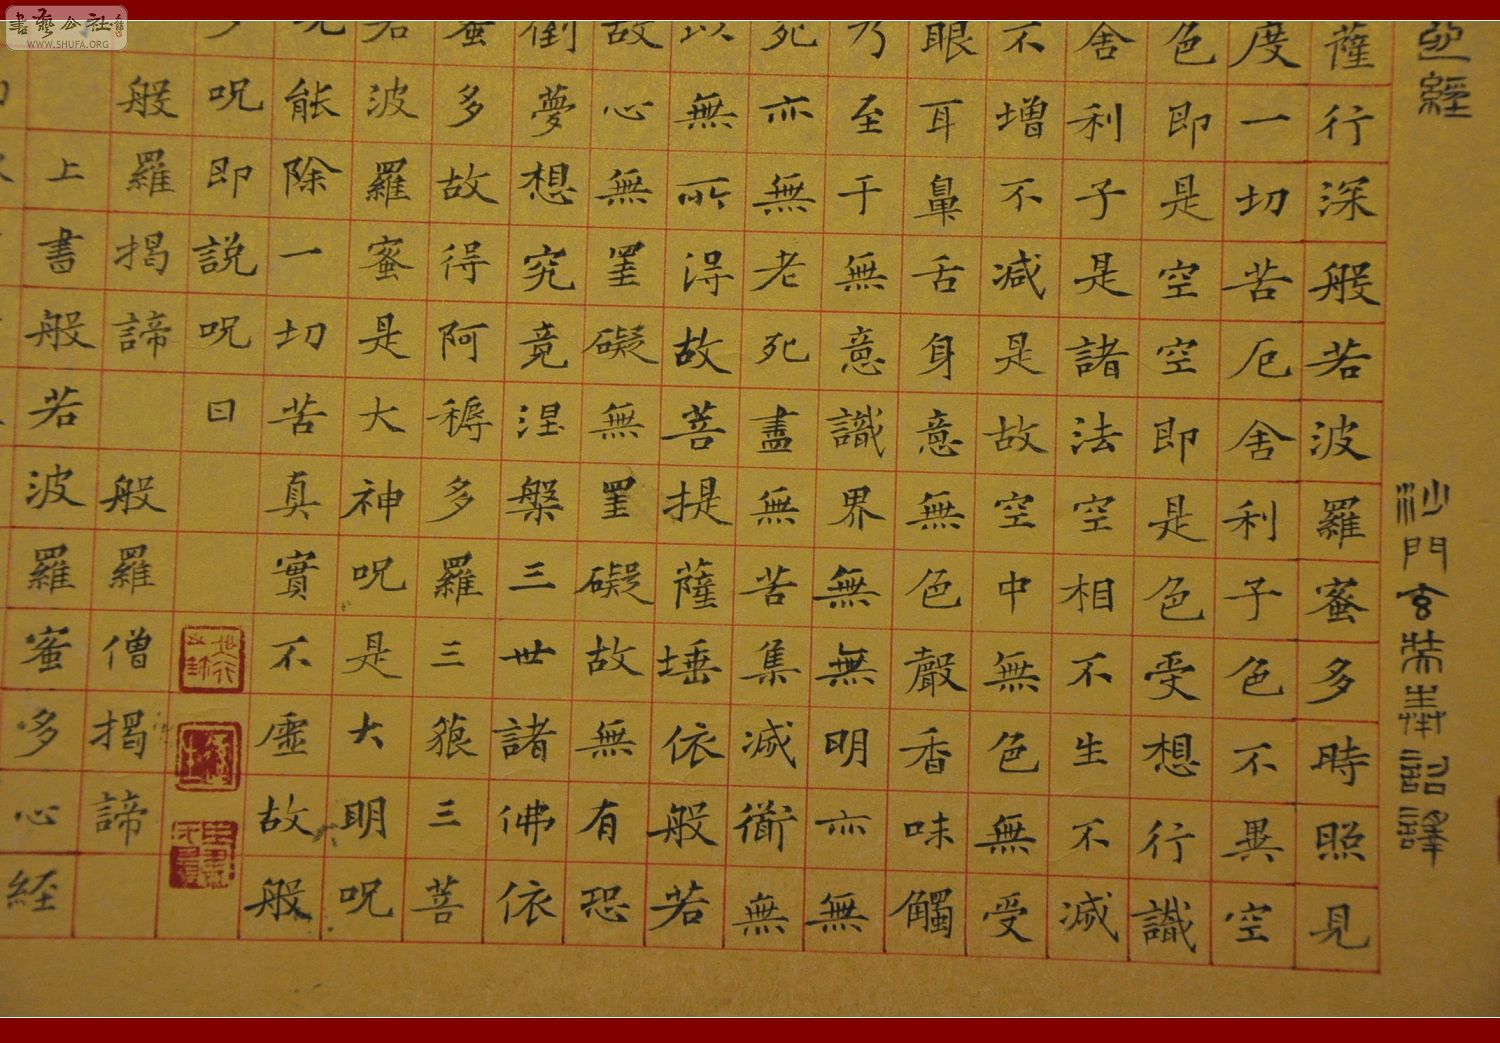 心經
沙門玄奘奉詔譯
薩行深般若波羅蜜多時照見
度一切苦厄舍利子色不異空
色即是空空即是色受想行識
舍利子是諸法空相不生不減
不增不減是故空中無色無受
眼耳鼻舌身意無色聲香味觸
乃至于無意識界無無明亦無
死亦無老死盡無苦集減衜無
以無所得故菩提薩埵依般若
故心無罣礙無罣礙故無有恐
倒夢想究竟涅槃三世諸佛依
蜜多故得阿耨多羅三藐三菩
若波羅蜜是大神呪是大明呪
呪能除一切苦真實不虛故般
多呪即說呪曰
般羅揭諦 般羅僧揭諦
上書般若波羅蜜多心経
書藝公社
WWW.SHUFA.ORG